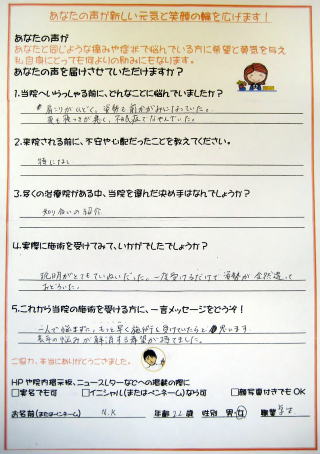 あなたの声が新しい元気と笑顔の輪を広げます！
あなたの声が
あなたと同じような痛みや症状で悩んでいる方に希望と勇気を与え
私自身にとっても何よりの励みにもなります。
あなたの声を届けさせていただけますか？
1.当院へいらっしゃる前に、どんなことに悩んでいましたか？
肩こりがひどく、姿勢も前かがみになっていた。
夜も寝つきが悪く、不眠症でなやんでいた。
2.来院される前に、不安や心配だったことを教えてください。
特になし
3.多くの治療院がある中、当院を選んだ決め手はなんでしょうか？
知り合いの紹介
4.実際に施術を受けてみて、いかがでしたでしょうか？
説明がとてもていねいだった。一度受けるだけで姿勢が全然違って
おどろいた。
5.これから当院の施術を受ける方に、一言メッセージをどうぞ！
一人で悩まずに、もっと早く施術を受けていたらと思います。
長年の悩みが解消する希望が持てました。
ご協力、本当にありがとうございました。
HPや院内掲示板、ニュースレターなどへの掲載の際に
□実名でも可 □イニシャル(またはペンネーム)なら可 □顔写真付きでもOK
お名前(またはペンネーム) N.K 年齢 22歳 性別 男・女 職業 学生